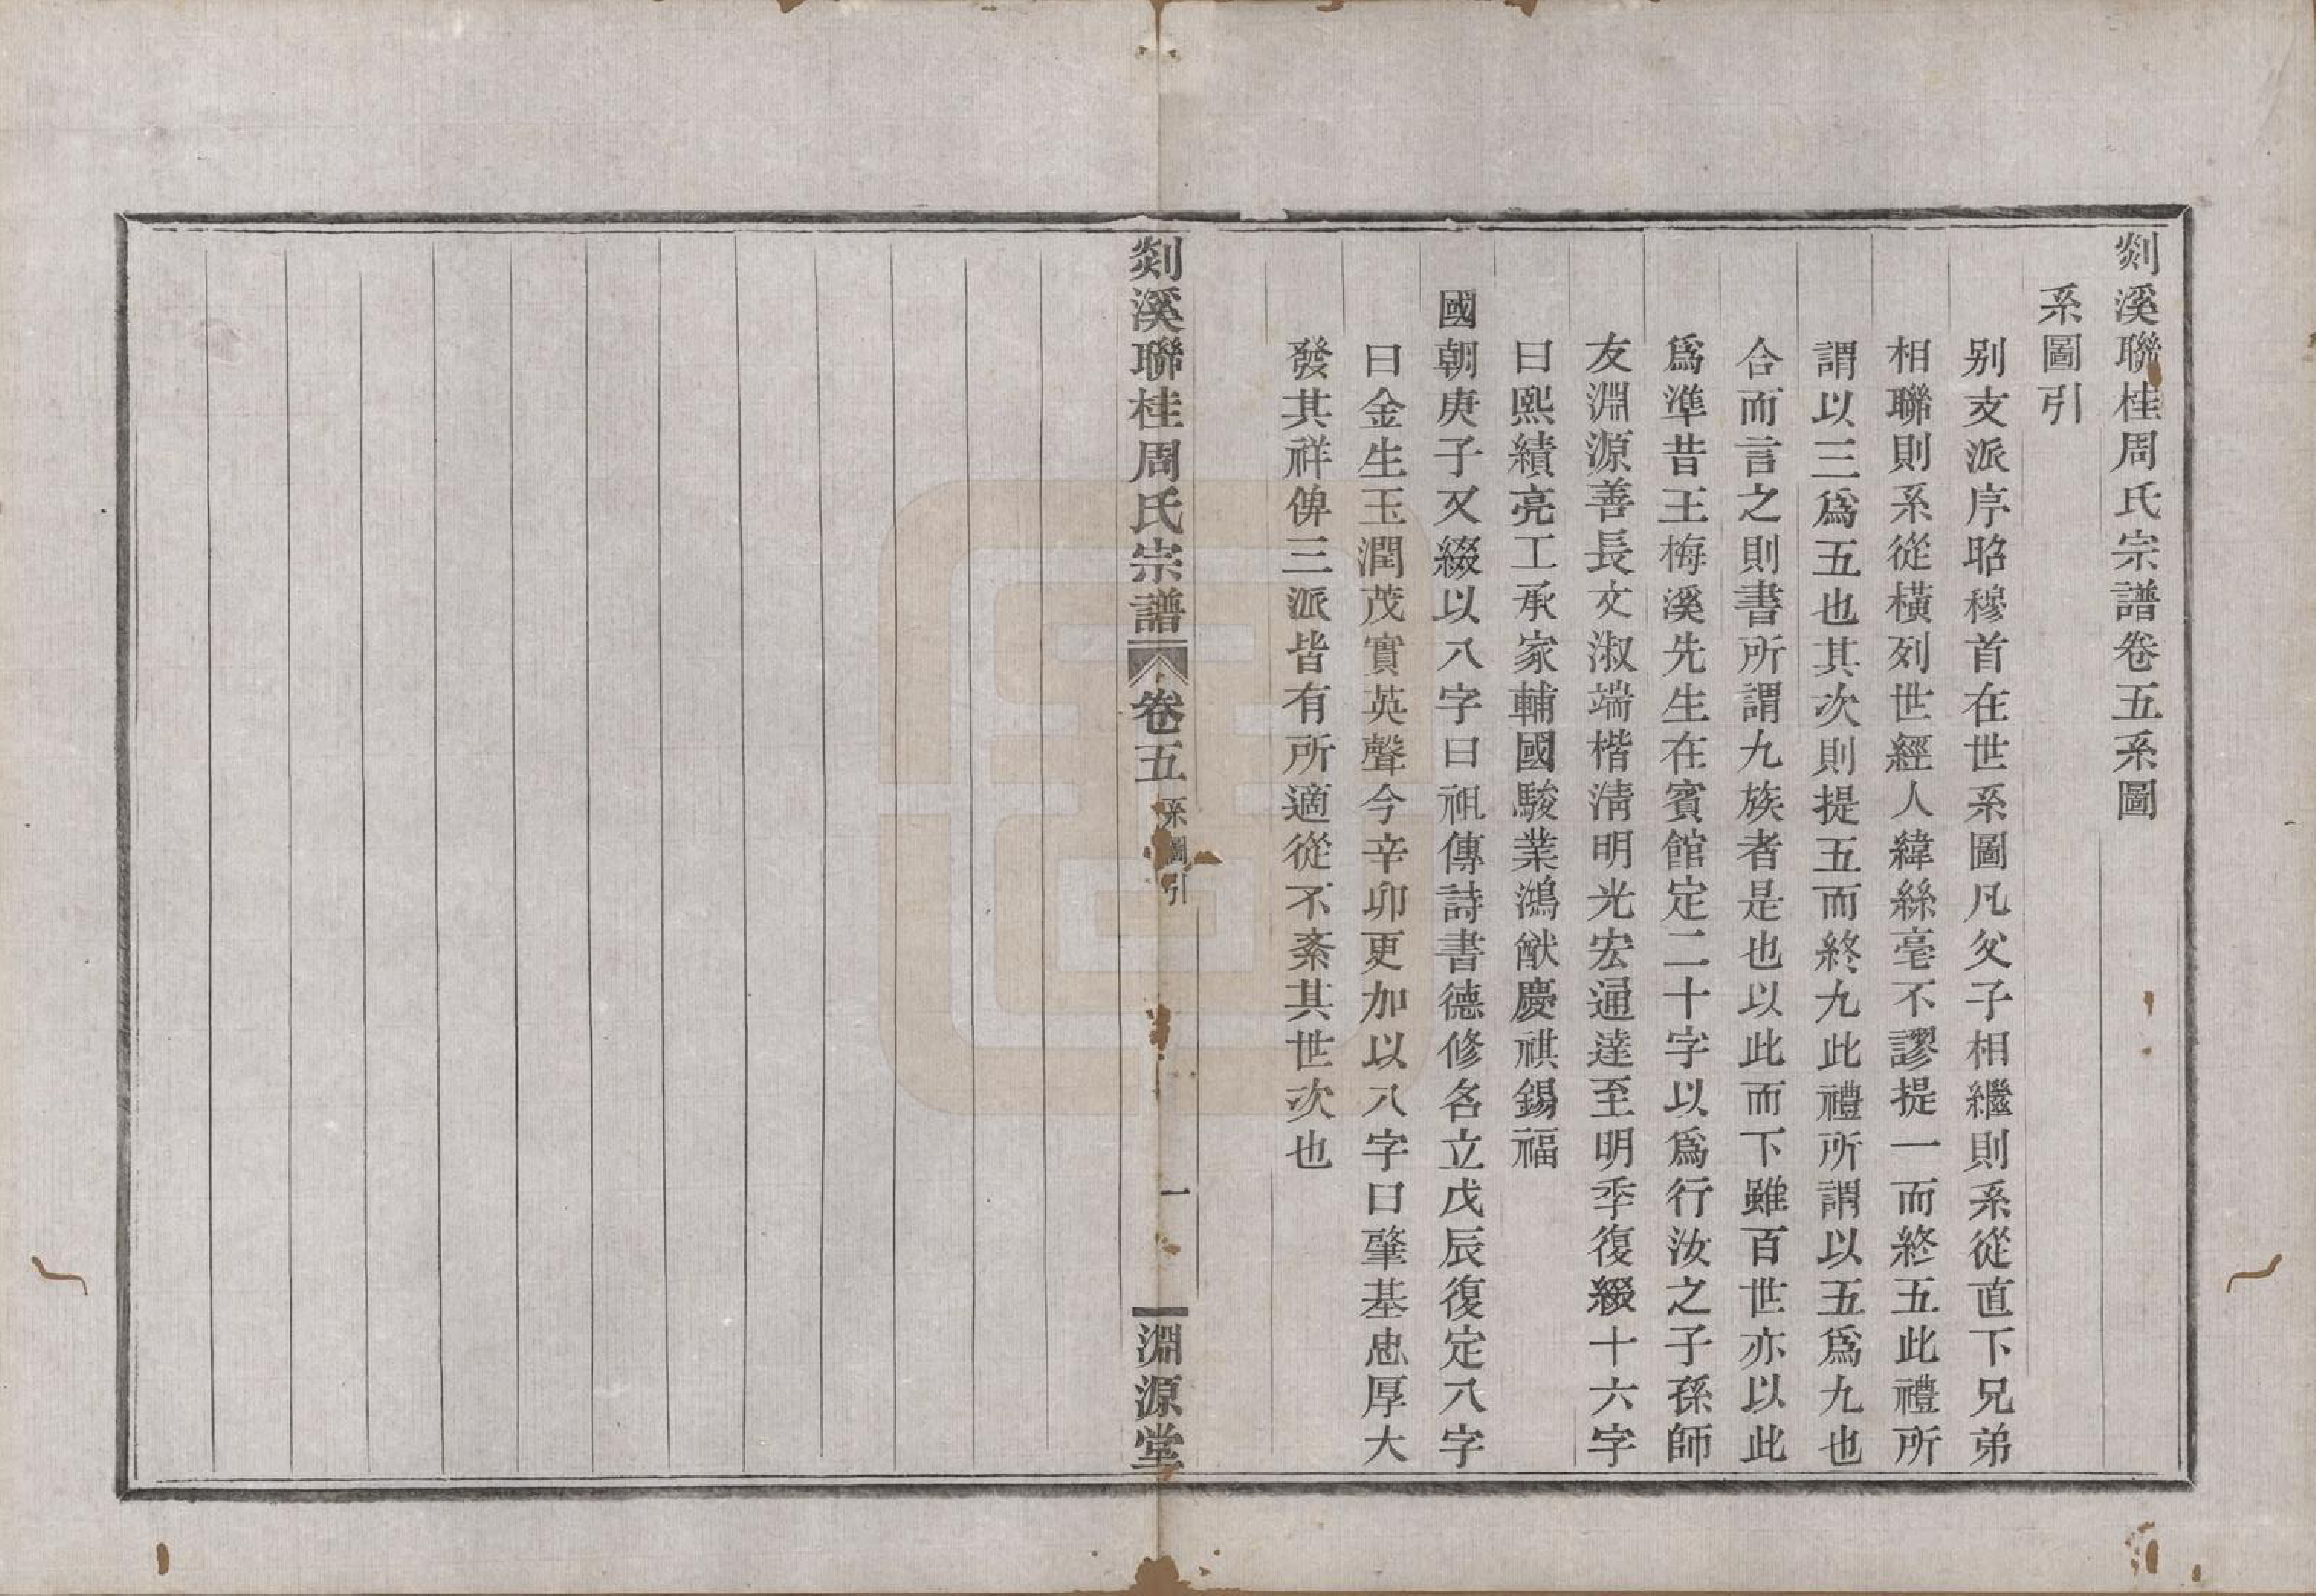 剡溪聯桂周氏宗譜卷五系圖
系圖引
別支派序昭穆首在世系圖凡父子相繼則系從直下兄弟
相聯則系從橫列世經人緯絲毫不謬提一而終五此禮所
謂以三爲五也其次則提五而終九此禮所謂以五爲九也
合而言之則書所謂九族者是也以此而下雖百世亦以此
爲準昔王梅溪先生在賓館定二十字以爲行汝之子孫師
友淵源善長文淑端楷淸明光宏通達至明季復綴十六字
曰熙績亮工承家輔國駿業鴻猷慶祺錫福
國朝庚子又綴以八字曰祖傳詩書德修名立戊辰復定八字
曰金生玉潤茂實英聲今辛卯更加以八字曰肇基忠厚大
發其祥俾三派皆有所適從不紊其世次也
剡溪聯桂周氏宗譜 卷五 系圖引 一 淵源堂